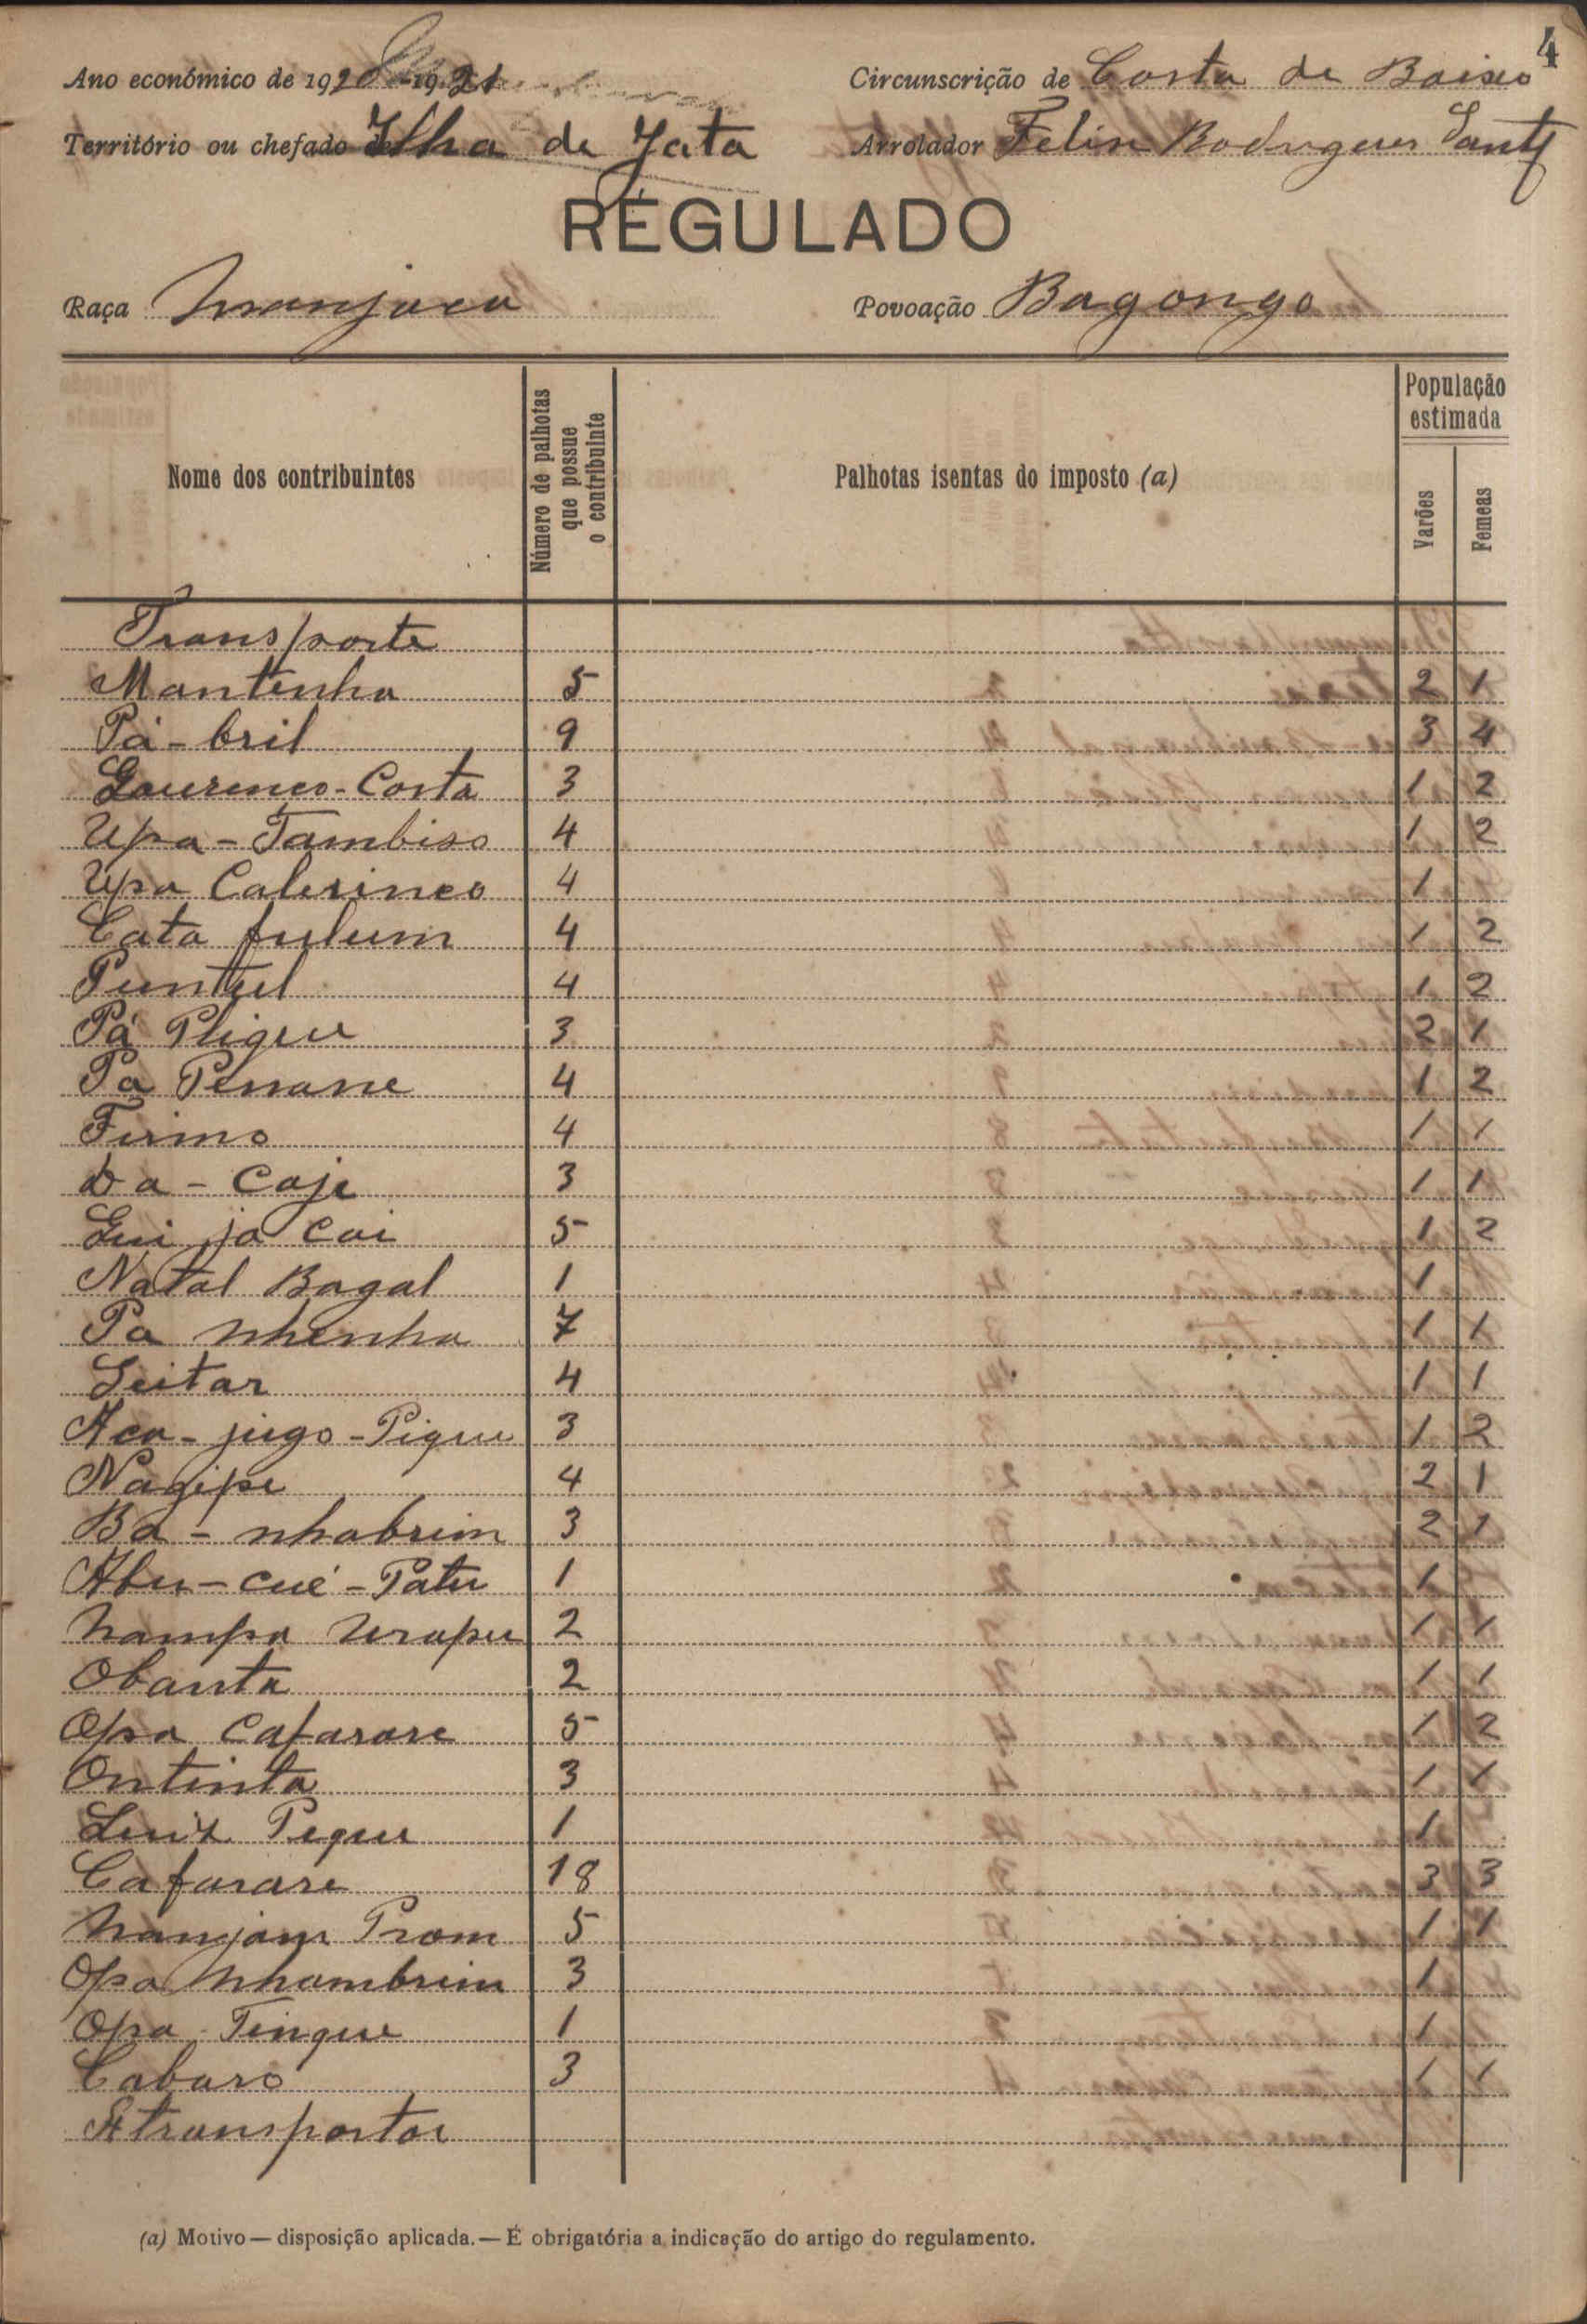 4
Ano económico de 1920-1921 Circunscrição de Costa de Baixo
Território ou chefado de Ilha de Jata Arrolador Felix Rodrigues Santos
RÉGULADO
Raça Manjaca Povoação Bagongo
Nome dos contribuintes Número de palhotas que possue o contribuinte Palhotas isentas do imposto (a) População estimada Varões Femeas
Transporte
Mantenha 5 2 1
Pá-bril 9 3 4
Lourenco-Costa 3 1 2
Upa-Tambiso 4 1 2
Upa Calerinco 4 1
Cata fulum 4 1 2
Puntul 4 1 2
Pá Pligue 3 2 1
Pa Penane 4 1 2
Firmo 4 1 1
Da-Caje 3 1 1
Lui ja Cai 5 1 2
Natal Bagal 1 1
Pa Nhenha 7 1 1
Leitar 4 1 1
Aca-jugo-Pique 3 1 2
Nagipe 4 2 1
Ba-nhabrim 3 2 1
Abu-cué-Patu 1 1
Nampa Urapu 2 1 1
Obanta 2 1 1
Opa Cafarare 5 1 2
Ontinta 3 1 1
Luiz Pique 1 1
Cafarare 18 3 3
Nanjam Prom 5 1 1
Opa Nhambrim 3 1
Opa Tingue 1 1
Cabaro 3 1 1
A transportar
(a) Motivo — disposição aplicada. — É obrigatória a indicação do artigo do regulamento.